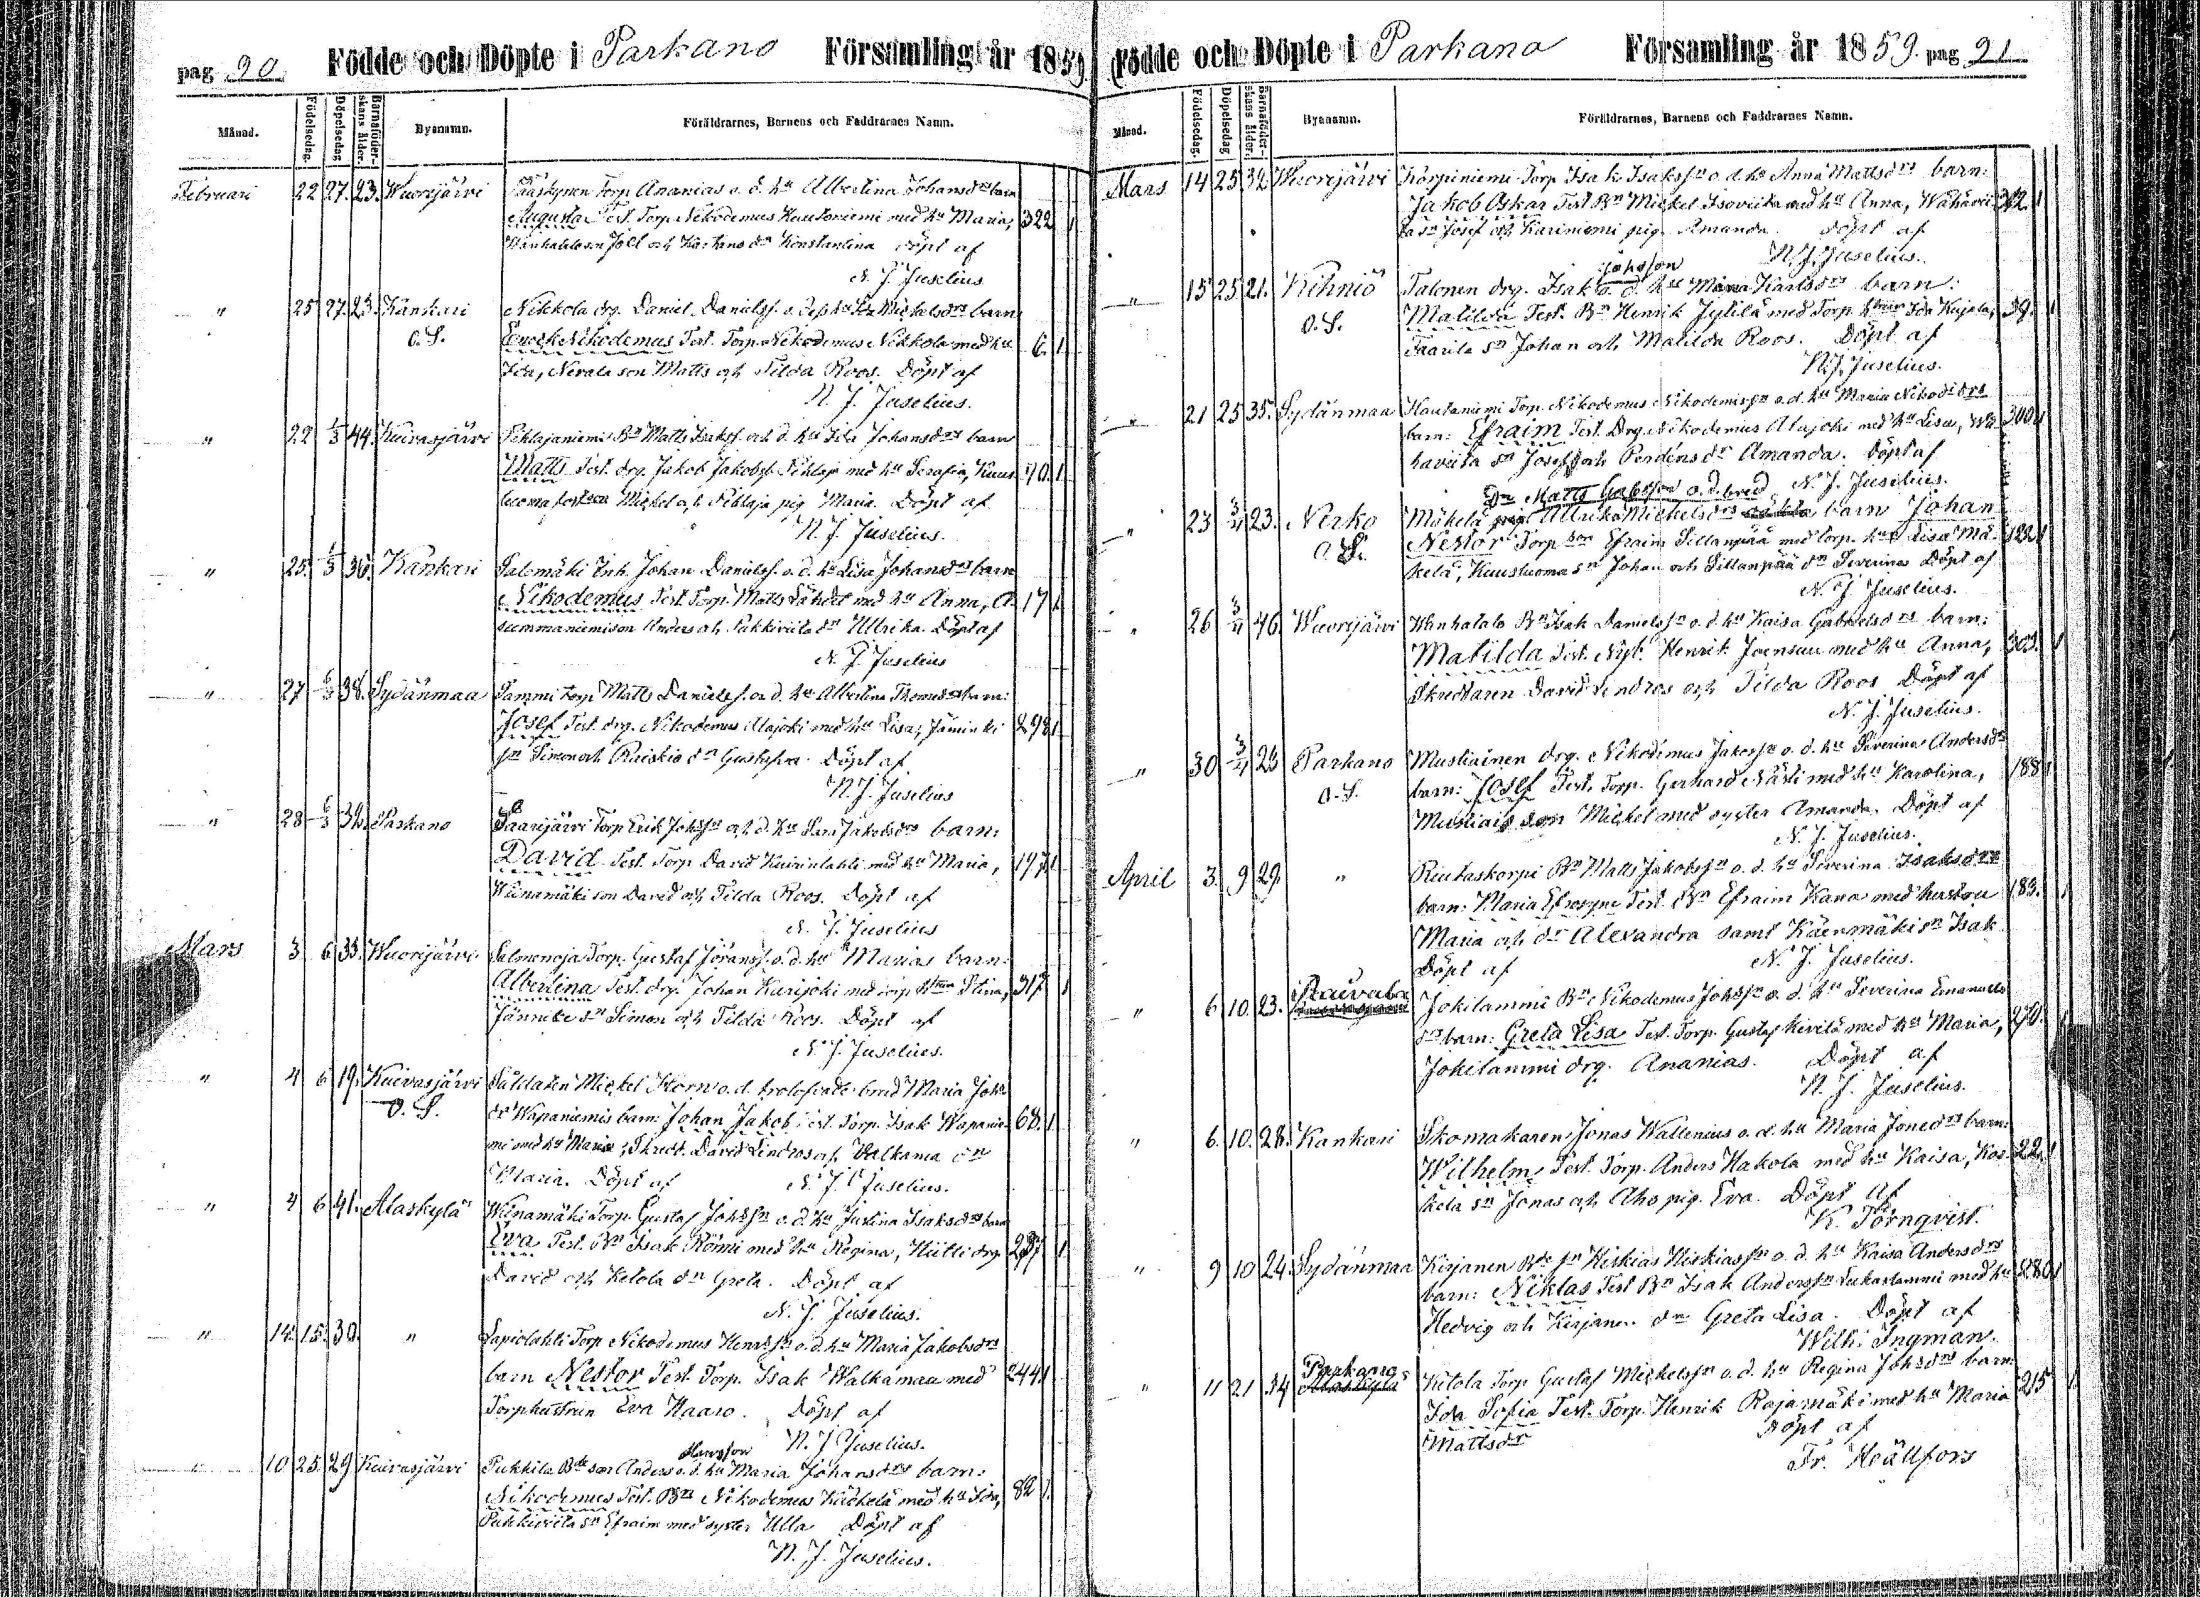 pag 90. Födde och Döpte i Parkano Församling år 1859
Månad. Födelsedag. Döpelsedag Barnaföderskans ålder. Byanamn. Föräldrarnes, Barnens och Faddrarnes Namn.
Februari 22 27. 23. Wuorijärvi Torp Ananias o. d. hu Albertina Johansdrs barn
Augusta Test. Torp. Nikodemus Hautoniemi med hu Maria, 322
Wanhatalo son Joel och dr Konstantina Döpt af
N. J. Juselius
" 25 27. 23. Kankari Nikkola drg. Daniel Danielss. o. hu Ida Mickelsdrs barn
o. S. Enok Nikodemus Test. Torp. Nikodemus Nikkola med hu 6.
Ida, Nevala son Matts och Tilda Roos. Döpt af
N. J. Juselius.
" 22 1/3 44. Kuivasjärvi Pihlajaniemi Bn Matts Isakss. och d. hu Johansdrs barn
Matts Test. drg. Jakob Jakobss. Pihlaja med hu Serafia, Kuus 70.
luoma son Mickel och Pihlaja pig. Maria. Döpt af
N. J. Juselius.
" 25. 1/3 36. Kankari Salomäki Inh. Johan Danielss. o. d. hu Lisa Johansdrs barn
Nikodemus Test. Torp. Matts Lähdet med hu Anna, A 17
summaniemi son Anders och Pukkiviita dr Ullrika. Döpt af
N. J. Juselius
" 27 6/3 38. Sydänmaa Sammi Torp Matts Danielss. o. d. hu Albertina Thomasdrs barn:
Josef Test. drg. Nikodemus Alajoki med hu Lisa, Jäminki 298
sn Simon och Raiskio dr Gustafva. Döpt af
N. J. Juselius
" 28 6/3 Parkano Saarijärvi Torp Erik Johssn och d. hu Sara Jakobsdrs barn:
David Test. Torp David Kuivinlahti med hu Maria, 197
Wiinamäki son David och Tilda Roos. Döpt af
N. J. Juselius
Mars 3 6 33. Wuorijärvi Salmenoja Torp. Gustaf Göranss. o. d. hu Marias barn:
Albertina Test. drg. Johan Karijoki med torp. hstrun Stina, 317
sn Simon och Tilda Roos. Döpt af
N. J. Juselius.
" 4 6 19. Kuivasjärvi Soldaten Mickel Storm o. d. trolofvade brud Maria Joh.
o. S. dr Wapaniemis barn: Johan Jakob Test. Torp. Isak Wapanie 68.
mi med hu Maria, Skredd. David Lindros och Valkama dr
Maria. Döpt af N. J. Juselius.
" 4 6 41. Alaskylä Wiinamäki Torp. Gustaf Johssn o. d. hu Justina Isaksdrs barn
Eva Test. Bn Isak Römi med hu Regina, Hiitti drg. 237
David och Ketola dr Greta. Döpt af
N. J. Juselius.
" 14. 15. 30. " Lapiolahti Torp Nikodemus Henrssn o. d. hu Maria Jakobsdrs
barn Nestor Test. Torp. Isak Walkamaa med 244
Torphustrun Eva Haaro. Döpt af
N. J. Juselius.
" 10 25. 29 Kuivasjärvi Pukkila Bde son Anders o. d. hu Maria Johansdrs barn:
Nikodemus Test. Bn Nikodemus med hu Ida, 82
Pukkiviita sn Efraim med syster Ulla Döpt af
N. J. Juselius.
Födde och Döpte i Parkano Församling år 1859. pag 91
Månad. Födelsedag. Döpelsedag Barnaföderskans ålder. Byanamn. Föräldrarnes, Barnens och Faddrarnes Namn.
Mars 14 25 32 Wuorijärvi Korpiniemi Torp Isak Isakssn o. d. hu Anna Mattsdrs barn:
Jakob Oskar Test Bn Mickel Isoviita med hu Anna, Wähävii 312.
ta sn Josef och Kariniemi pig. Amanda. Döpt af
N. J. Juselius.
" 15 25 21. Kihniö Talonen drg. Isak Johsson o. d. hu Maria Karlsdrs barn:
o. S. Matilda Test. Bn Henrik Jylilä med Torp. hstrun Ida Kujala, 39.
Faarila sn Johan och Matilda Roos. Döpt af
N. J. Juselius.
" 21 25 35. Sydänmaa Hautaniemi Torp. Nikodemus Nikodemissn o. d. hu Maria Nikod:drs
barn: Efraim Test. Drg. Nikodemus Alajoki med hu Lisa, Wä 300
haviita sn Josef och dr Amanda. Döpt af
N. J. Juselius.
Matts o. d. brud
" 23 3/4 23. Nerko Mäkelä Ullrika Michelsdrs barn Johan
o. S. Nestor Torp son Efraim Sillanpää med torp. hu Lisa Mä 122
kelä, Kuusluoma sn Johan och Sillanpää dr Severina Döpt af
N. J. Juselius.
" 26 3/4 46. Wuorijärvi Wanhatalo Bn Isak Danielssn o. d. hu Kaisa Gabrielsdrs barn:
Matilda Test. Nyb. Henrik Joensuu med hu Anna, 303.
Skreddaren David Lindros och Tilda Roos Döpt af
N. J. Juselius.
" 30 3/4 23 Parkano Mustiainen drg. Nikodemus Jakobssn o. d. hu Severina Andersdrs
o. S. barn: Josef Test. Torp. Gerhard Närli med hu Karolina, 188
Mustiais son Mickel med syster Amanda. Döpt af
N. J. Juselius.
April 3. 9 29. " Riutaskorpi Bn Matts Jakobssn o. d. hu Severina Isaksdrs
barn: Maria Efrosyne Test. Bn Efraim Kana med hustru 183.
Maria och dr Alexandra samt Käenmäki sn Isak
Döpt af N. J. Juselius.
" 6 10. 23. Jokilammi Bn Nikodemus Johssn o. d. hu Severina Emanuels
dr barn: Greta Lisa Test. Torp. Gustaf Kivilä med hu Maria, 270.
Jokilammi drg. Ananias. Döpt af
N. J. Juselius.
" 6. 10. 28. Kankari Skomakaren Jonas Wallenius o. d. hu Maria Jonedrs barn:
Wilhelm Test. Torp. Anders Hakola med hu Kaisa, Kos 22.
kela sn Jonas och Aho pig. Eva. Döpt af
K. Törnqvist.
" 9 10 24. Sydänmaa Kirjanen Bde sn Hiskias Hiskiassn o. d. hu Kaisa Andersdrs
barn: Niklas Test Bn Isak Anderssn Lukaslammi med hu 280
Hedvig och Kirjanen dr Greta Lisa. Döpt af
Wilh: Ingman.
Parkano
" 11 21 34 Alaskylä Ketola Torp Gustaf Mickelssn o. d. hu Regina Johsdrs barn: 215
Ida Sofia Test. Torp. Henrik Rajamäki med hu Maria
Mattsdr Döpt af
Fr. Heällfors